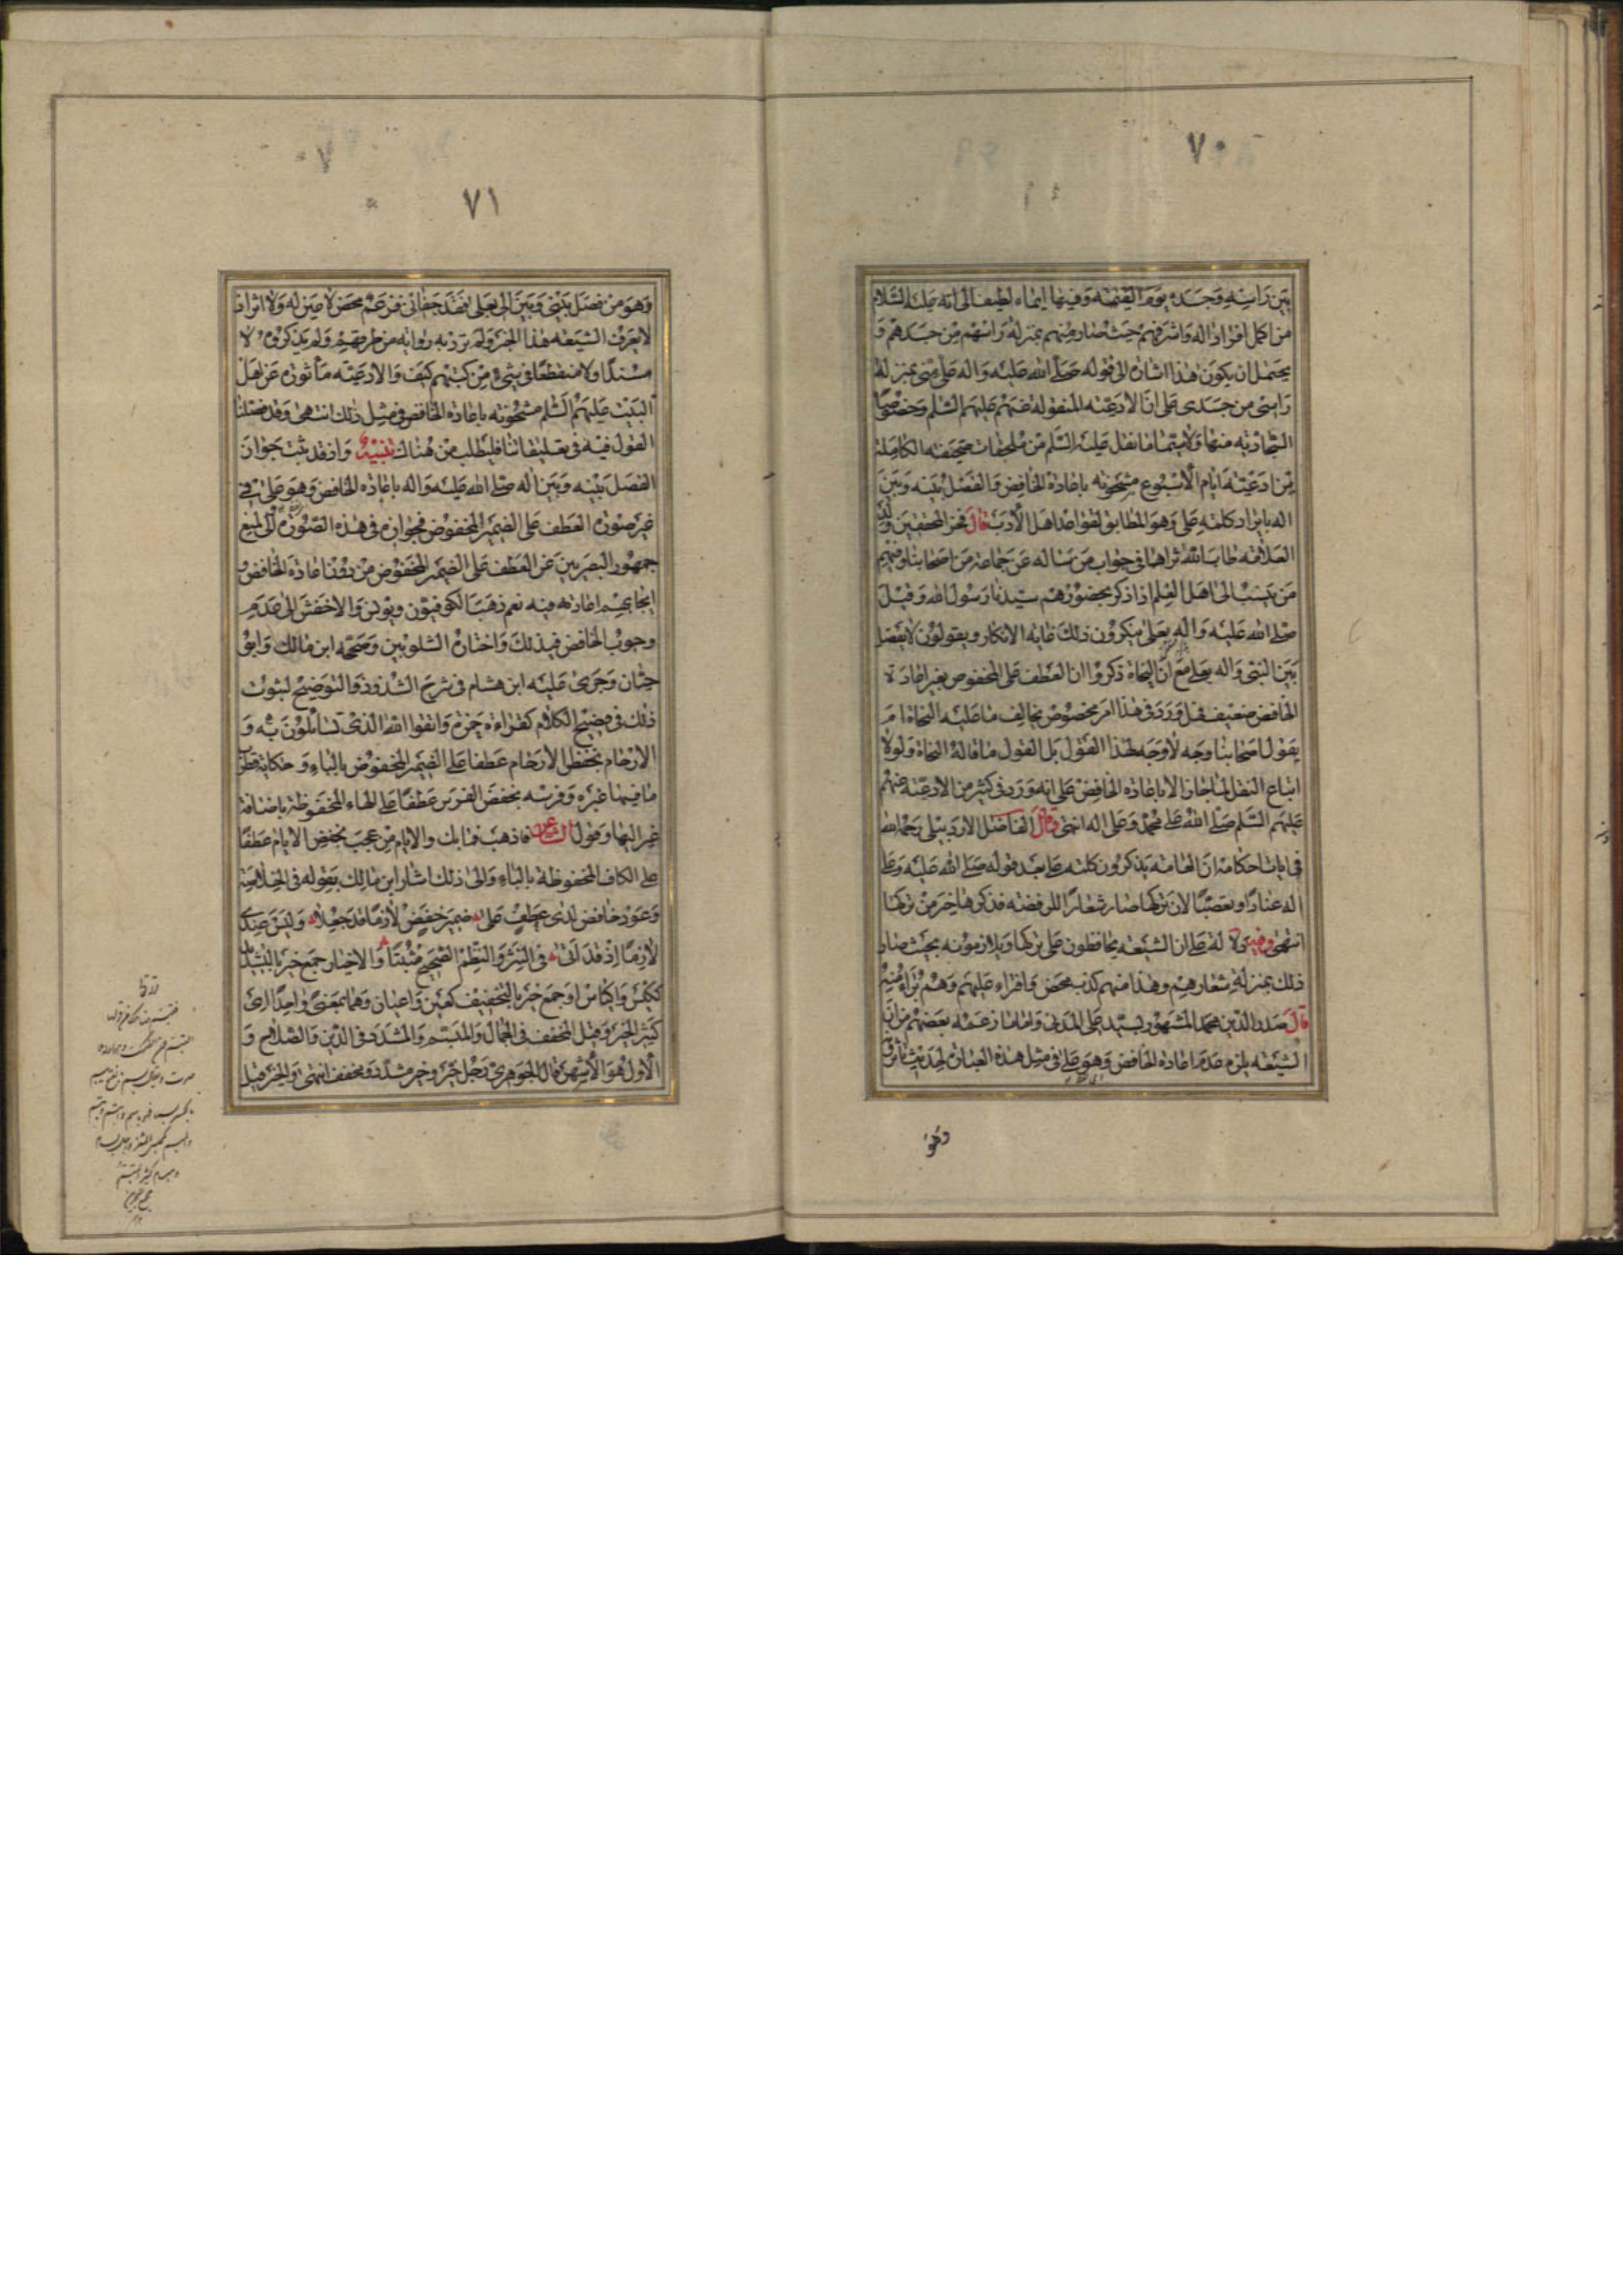 ٧٠
بين راسه وجسده يوم القيمة وفيها ايماء لطيف الى انه عليه السلام
من اكمل افراد اله واشرفهم حيث صار منهم بمنزلة راسهم من جسدهم و
يحتمل ان يكون هذا اشارة الى قوله صلى الله عليه واله على منى بمنزلة
راسى من جسدى على ان الادعية المنقولة عنهم عليهم السلم وخصوصا
السجادية منها ولا سيما ما نقل عليه السلم من ملحقات صحيفته الكاملة
من ادعية ايام الاسبوع مشحونة باعادة الخافض والفصل بينه وبين
اله بايراد كلمة على وهو المطابق لقواعد اهل الأدب قال فخر المحققين ولد
العلامة طاب الله ثراهما فى جواب من ساله عن جماعة من اصحابنا ومنهم
من ينسب الى اهل العلم اذا ذكر بحضورهم سيدنا رسول الله وقيل
صلى الله عليه واله بعلى ينكرون ذلك غاية الانكار ويقولون لا يفصل
بين النبى واله بعلى مع ان النحاة ذكروا ان العطف على المخفوض بغير اعادة
الخافض ضعيف فهل ورد فى هذا امر مخصوص يخالف ما عليه النحاة ام
يقول اصحابنا وجه لا وجه لهذا القول بل القول ما قاله النحاة ولولا
اتباع النقل لما جاز الا باعادة الخافض على انه ورد فى كثير من الادعية عنهم
عليهم السلم صلى الله على محمد وعلى اله انتهى وقال الفاضل الاردبيلى رحمه الله
فى ايات احكامه ان العامة يذكرون كلمة على بعد قوله صلى الله عليه وعلى
اله عنادا وتعصبا لان تركها صار شعارا للرفضة فذكرها خير من تركها
انتهى وفيه دلالة على ان الشيعة يحافظون على تركها ويلازمونه بحيث صار
ذلك بمنزلة شعارهم وهذا منهم كذب محض وافتراء عليهم وهم براء منه
قال صدر الدين محمد المشهور بسيد على المدنى واما ما زعمه بعضهم من ان
الشيعة يلزم عدم اعادة الخافض وهو على فى مثل هذه العبارة لحديث
وهو
٧١
وهو من فصل بينى وبين الى بعلى فقد جفانى فزعم محض لا عين له ولا اثر اذ
لا يعرف الشيعة هذا الخبر ولم ترد به رواية من طرقهم ولم يذكروه لا
مسندا ولا منقطعا فى شىء من كتبهم كيف والادعية مأثورة عن اهل
البيت عليهم السلم مشحونة باعادة الخافض فى مثل ذلك انتهى وقد فصلنا
القول فيه فى تعليقاتنا فليطلب من هناك تنبيه واذ قد ثبت جواز
الفصل بينه وبين اله صلى الله عليه واله باعادة الخافض وهو على فى
غير صورة العطف على الضمير المخفوض فجوازه فى هذه الصورة اولى لمنع
جمهور البصريين عن العطف على الضمير المخفوض من دون اعادة الخافض و
ايجابهم اعادته فيه نعم ذهب الكوفيون ويونس والاخفش الى عدم
وجوب الخافض فى ذلك واختاره الشلوبين وصححه ابن مالك وابو
حيان وجرى عليه ابن هشام فى شرح الشذور والتوضيح لثبوت
ذلك فى فصيح الكلام كقراءة حمزة واتقوا الله الذى تسائلون به و
الارحام بخفض الأرحام عطفا على الضمير المخفوض بالباء وحكاية قطرب
ما فيها غيره وفرسه بخفض الفرس عطفا على الهاء المخفوظة باضافة
غير اليها وقول الشاعر فاذهب فما بك والايام من عجب بخفض الايام عطفا
على الكاف المخفوظة بالباء والى ذلك اشار ابن مالك بقوله فى الخلاصة
وعود خافض لدى عطف على ضمير خفض لازما قد جعلا وليس عندى
لازما اذ قد اتى فى النثر والنظم الصحيح مثبتا والاخيار جمع خير بالتشديد
ككيس واكياس او جمع خير بالتخفيف كعين واعيان وهما بمعنى واحد اى
كثير الخير وقيل المخفف فى الجمال والمبسم والمشدد فى الدين والصلاح و
الاول هو الأشهر قال الجوهرى رجل خير وخير مشدد ومخفف انتهى والخير قيل
مجمع البحرين